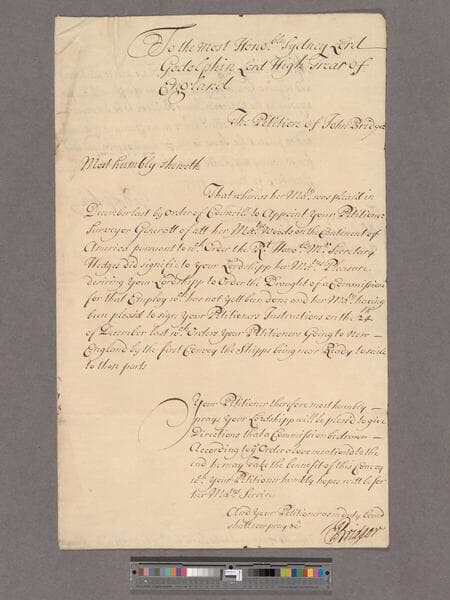 To the Most Hono:ble Sydney Lord
Godolphin Lord High Trear of
England
The Petition of John Bridger
Most humbly sheweth
That whereas her Ma:ty was pleas'd in
December last by Order of Councill to Appoint Your Petitioner
Surveyor Generall of all her Ma:tys Woods on the Continent of
America pursuant to wch Order the Rt Hono:ble Mr Secretary
Hedges did signifie to Your Lordshipp her Ma:tys Pleasure
desiring Your Lordshipp to Order the Draught of a Commission
for that Employ wch has not yett been done and her Ma:ty having
been pleas'd to sign Your Petitioners Instructions on the 24th
of December last wch Orders Your Petitioners Going to New=
England by the first Convoy the Shipps being near Ready to saile
to those parts
Your Petitioner therefore most humbly
prays Your Lordshipp will be pleas'd to give
Directions that a Commission be drawn
According to ye Order above mention'd to the
end he may take the bennefit of this Convoy
wch Your Petitioner humbly hopes will be for
her Ma:tys Service
And Your Petitioner as in duty bound
shall ever pray &c
JBridger